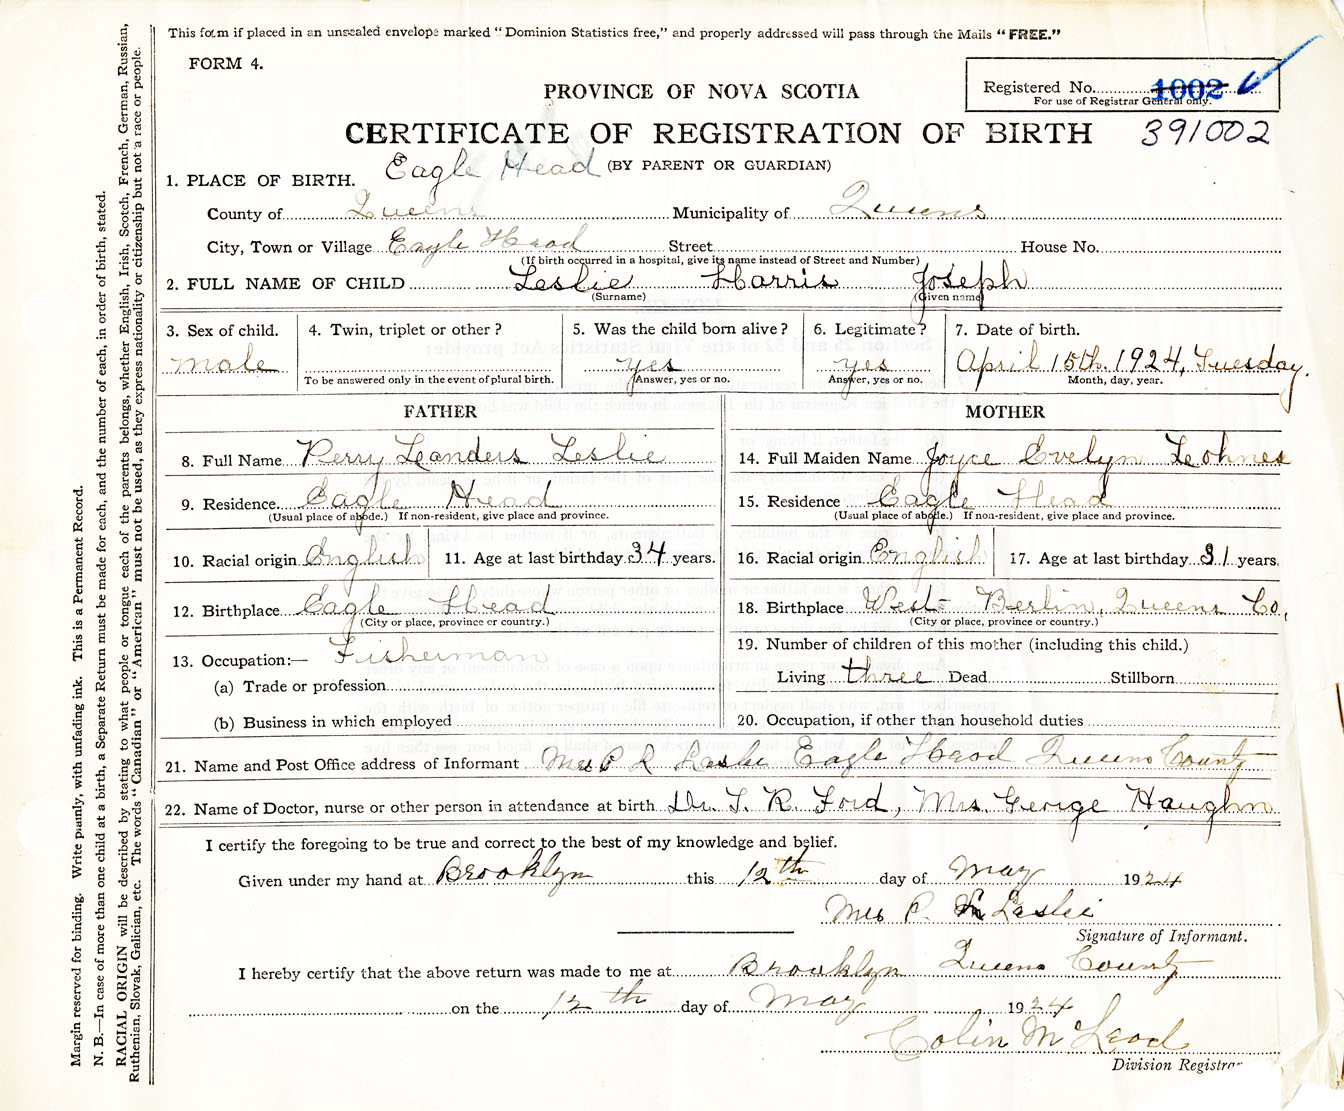 This form if placed in an unsealed envelope marked "Dominion Statistics free," and properly addressed will pass through the Mails "FREE."
FORM 4.
Registered No. 1002
For use of Registrar General only.
PROVINCE OF NOVA SCOTIA
CERTIFICATE OF REGISTRATION OF BIRTH 391002
(BY PARENT OR GUARDIAN)
1. PLACE OF BIRTH. Eagle Head
County of Queens Municipality of Queens
City, Town or Village Eagle Head Street House No.
(If birth occurred in a hospital, give its name instead of Street and Number)
2. FULL NAME OF CHILD Leslie Harris Joseph
(Surname) (Given name)
3. Sex of child. male
4. Twin, triplet or other?
To be answered only in the event of plural birth.
5. Was the child born alive? yes
Answer, yes or no.
6. Legitimate? yes
Answer, yes or no.
7. Date of birth.
April 15th. 1924, Tuesday.
Month, day, year.
FATHER
8. Full Name Perry Leanders Leslie
9. Residence Eagle Head
(Usual place of abode.) If non-resident, give place and province.
10. Racial origin English 11. Age at last birthday 34 years.
12. Birthplace Eagle Head
(City or place, province or country.)
13. Occupation:— Fisherman
(a) Trade or profession
(b) Business in which employed
MOTHER
14. Full Maiden Name Joyce Evelyn Lohnes
15. Residence Eagle Head
(Usual place of abode.) If non-resident, give place and province.
16. Racial origin English 17. Age at last birthday 31 years.
18. Birthplace West Berlin, Queens Co,
(City or place, province or country.)
19. Number of children of this mother (including this child.)
Living three Dead Stillborn
20. Occupation, if other than household duties
21. Name and Post Office address of Informant Mrs P L Leslie Eagle Head Queens County
22. Name of Doctor, nurse or other person in attendance at birth Dr. T. R. Ford, Mrs. George Haughn
I certify the foregoing to be true and correct to the best of my knowledge and belief.
Given under my hand at Brooklyn this 12th day of May 1924
Mrs P. L Leslie
Signature of Informant.
I hereby certify that the above return was made to me at Brooklyn Queens County
on the 12th day of May 1924
Colin McLeod
Division Registrar
Margin reserved for binding. Write plainly, with unfading ink. This is a Permanent Record.
N. B.—In case of more than one child at a birth, a Separate Return must be made for each, and the number of each, in order of birth, stated.
RACIAL ORIGIN will be described by stating to what people or tongue each of the parents belongs, whether English, Irish, Scotch, French, German, Russian,
Ruthenian, Slovak, Galician, etc. The words "Canadian" or "American" must not be used, as they express nationality or citizenship but not a race or people.